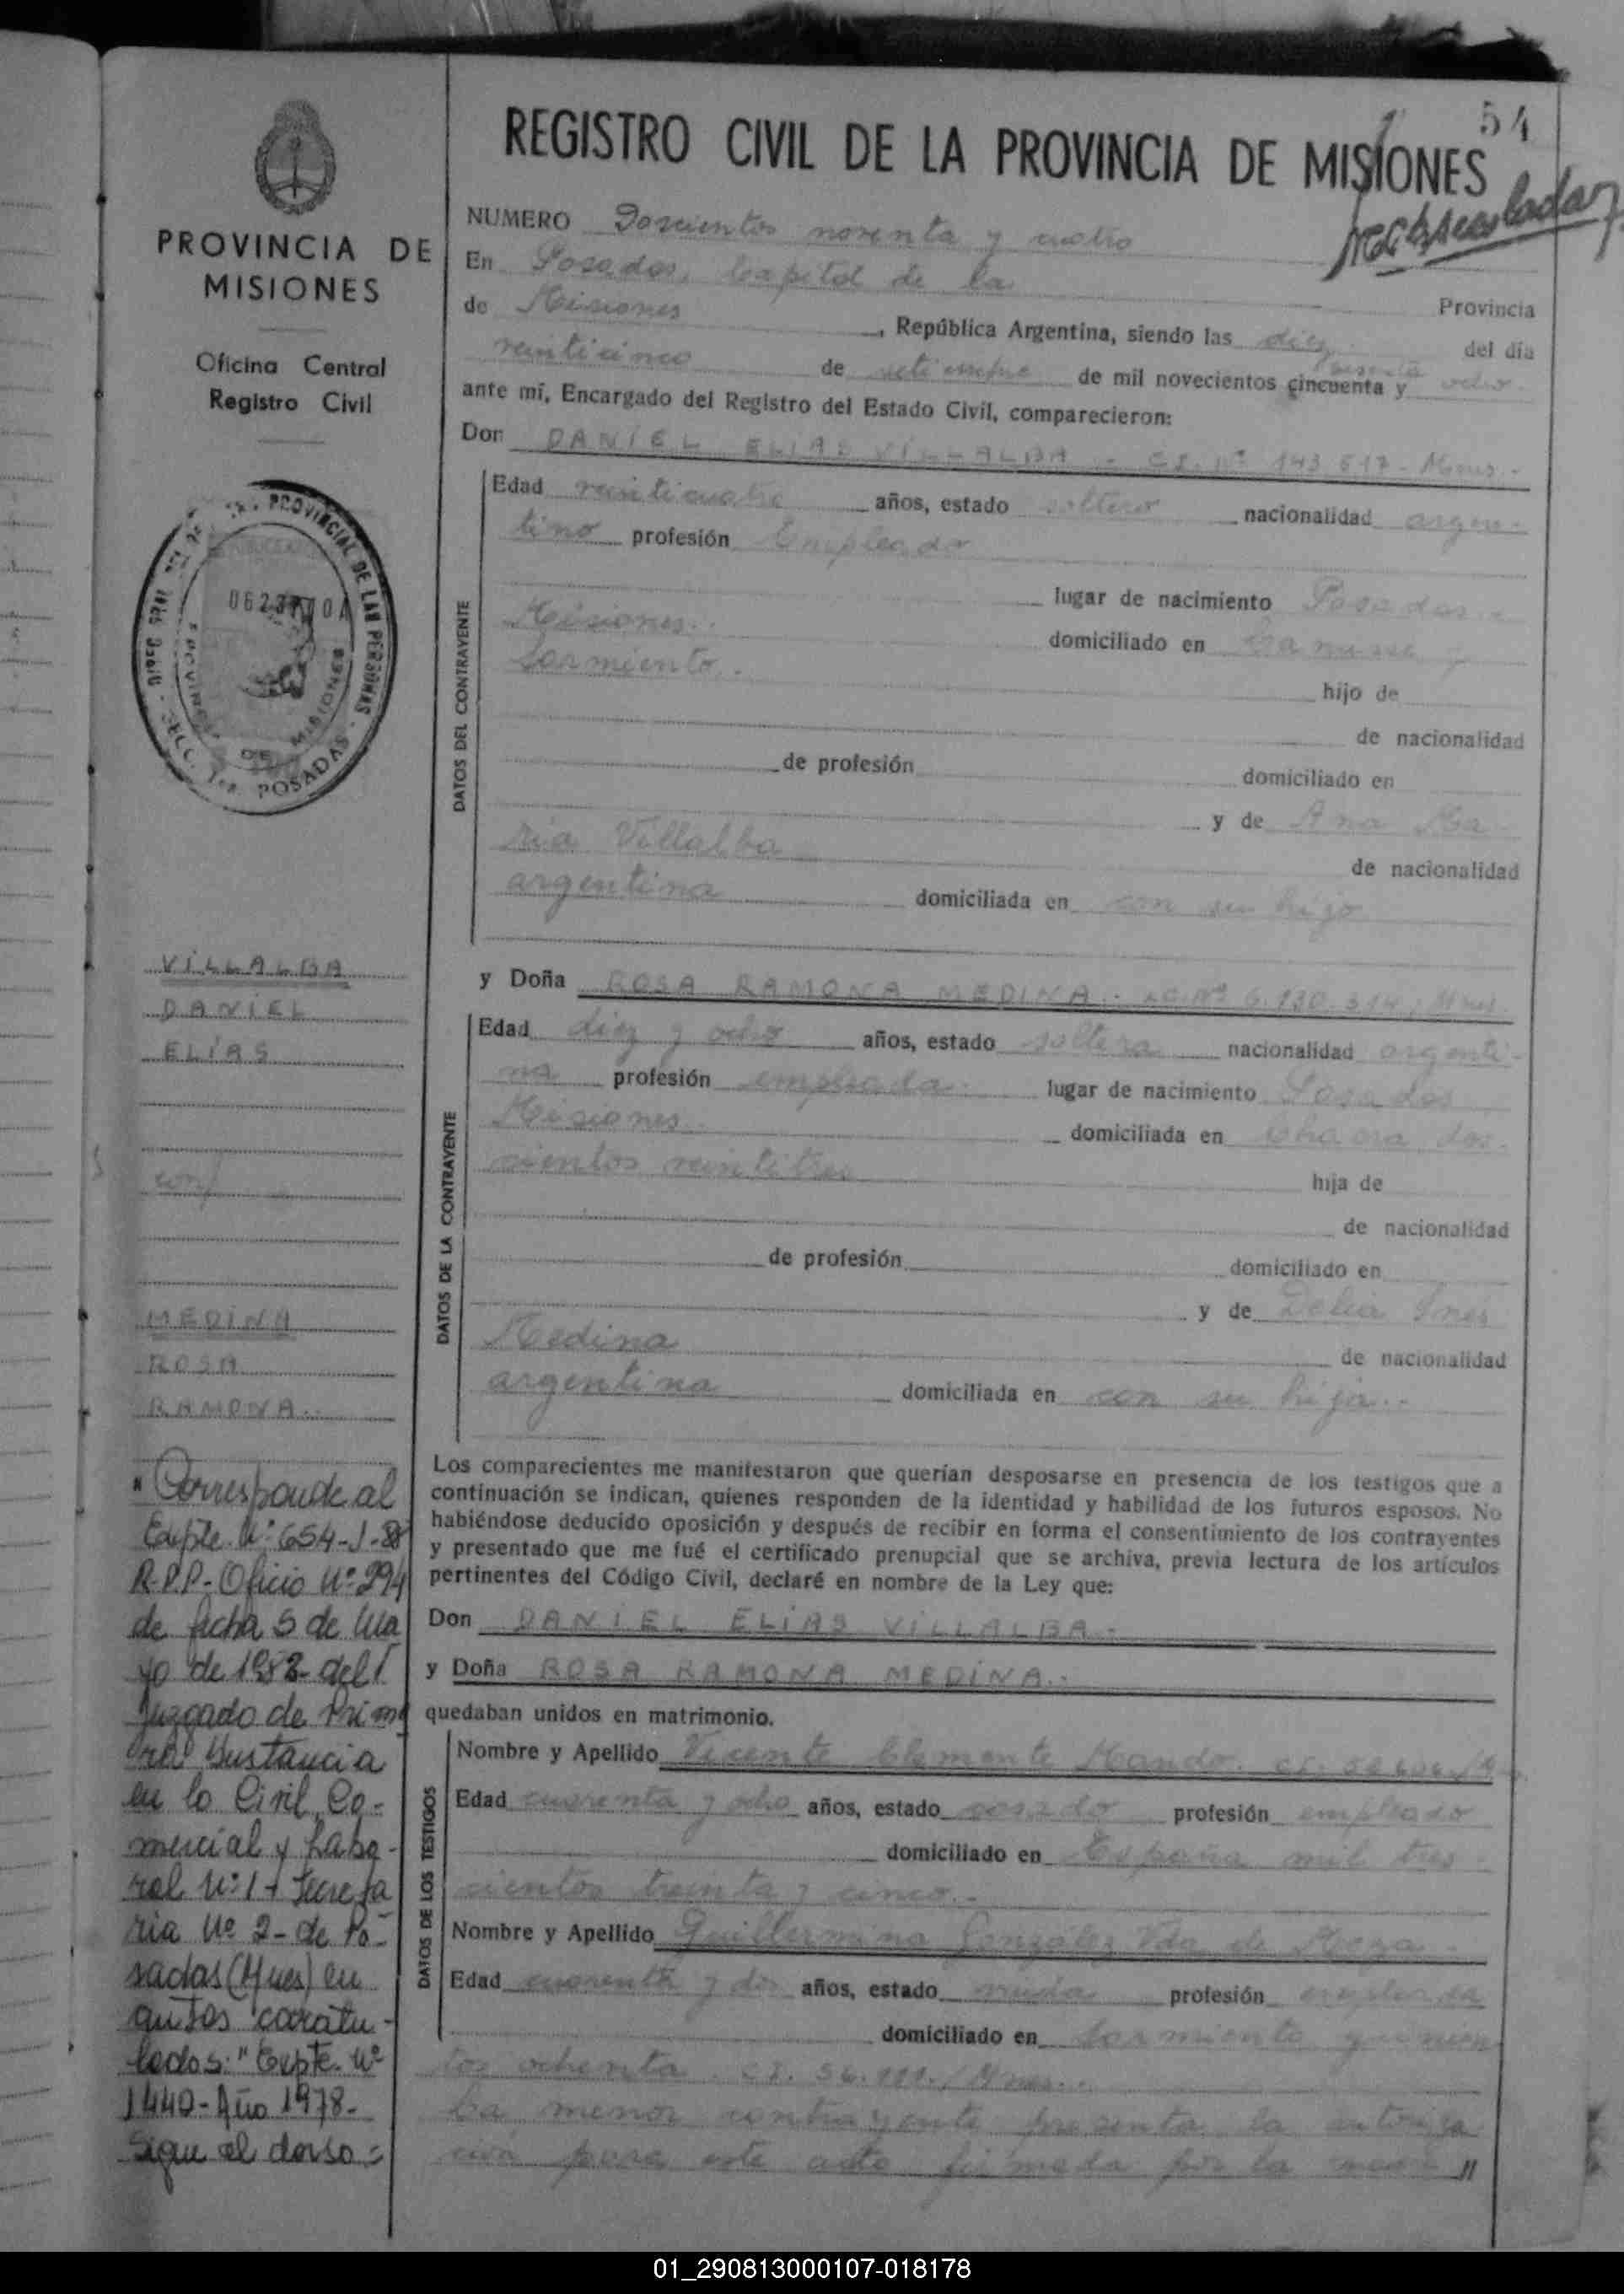 54
REGISTRO CIVIL DE LA PROVINCIA DE MISIONES
PROVINCIA DE
MISIONES
Oficina Central
Registro Civil
PROVINCIAL DE LAS PERSONAS
POSADAS
MISIONES
VILLALBA
DANIEL
ELIAS
con
MEDINA
ROSA
RAMONA.-
" Corresponde al
Expte. Nº 654-J-8
R.P.P.- Oficio Nº 294
de fecha 5 de Ma
yo de 1982- del
Juzgado de Prime
ra Instancia
en lo Civil, Co-
mercial y Labo-
ral Nº 1 - Secreta
ria Nº 2 - de Po-
sadas (Mnes) en
autos caratu-
lados: "Expte. Nº
1440- Año 1978-
Sigue al dorso =
NUMERO Doscientos noventa y cuatro
En Posadas, Capital de la Provincia
de Misiones, República Argentina, siendo las diez del día
veinticinco de setiembre de mil novecientos cincuenta y sesenta ocho.
ante mí, Encargado del Registro del Estado Civil, comparecieron:
Don DANIEL ELIAS VILLALBA - C.I. Nº 143.617- Mnes.-
DATOS DEL CONTRAYENTE
Edad veinticuatro años, estado soltero nacionalidad argen-
tino profesión Empleado
lugar de nacimiento Posadas.-
Misiones.- domiciliado en
Sarmiento.- hijo de
de nacionalidad
de profesión domiciliado en
y de Ana Ma-
ria Villalba de nacionalidad
argentina domiciliada en con su hijo
y Doña ROSA RAMONA MEDINA.- L.C. Nº 6.130.314, Mnes.
DATOS DE LA CONTRAYENTE
Edad diez y ocho años, estado soltera nacionalidad argenti-
na profesión empleada.- lugar de nacimiento Posadas
Misiones.- domiciliada en chacra dos-
cientos veintitres hija de
de nacionalidad
de profesión domiciliado en
y de Delia Ines
Medina de nacionalidad
argentina domiciliada en con su hija.-
Los comparecientes me manifestaron que querían desposarse en presencia de los testigos que a
continuación se indican, quienes responden de la identidad y habilidad de los futuros esposos. No
habiéndose deducido oposición y después de recibir en forma el consentimiento de los contrayentes
y presentado que me fué el certificado prenupcial que se archiva, previa lectura de los artículos
pertinentes del Código Civil, declaré en nombre de la Ley que:
Don DANIEL ELIAS VILLALBA.-
y Doña ROSA RAMONA MEDINA.-
quedaban unidos en matrimonio.
DATOS DE LOS TESTIGOS
Nombre y Apellido Vicente Clemente
Edad cuarenta y ocho años, estado casado profesión empleado
domiciliado en España mil tres-
cientos treinta y cinco.-
Nombre y Apellido Guillermina González Vda de Meza.-
Edad cuarenta y dos años, estado viuda profesión empleada
domiciliado en Sarmiento quinien
tos ochenta. C.I. 56.111./Mnes.-
La menor contrayente presenta la autoriza
ción para este acto firmada por la madre //
01_290813000107-018178